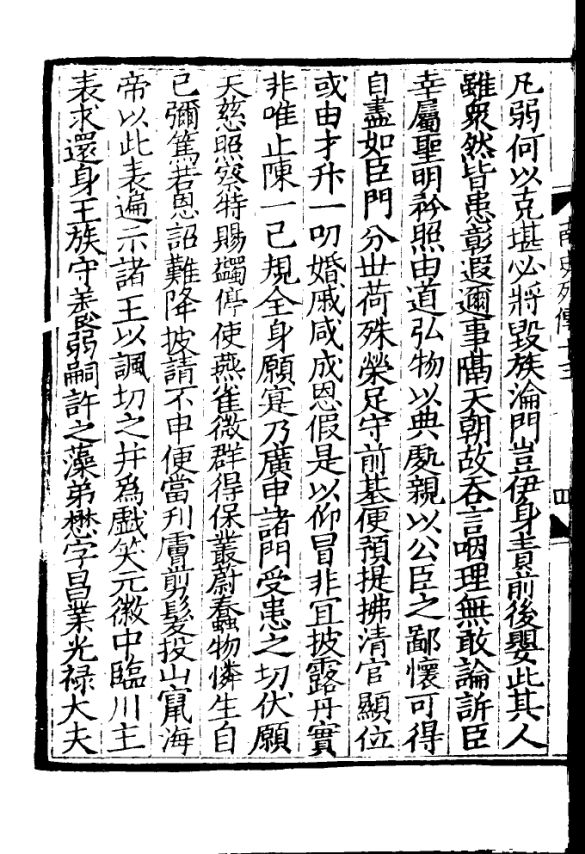 凡弱何以克堪必將毀族淪門豈伊身眚前後嬰此其人
雖衆然皆患彰遐邇事隔天朝故吞言咽理無敢論訴臣
幸屬聖明矜照由道弘物以典處親以公臣之鄙懷可得
自盡如臣門分丗荷殊榮足守前基便預提拂清官顯位
或由才升一叨婚戚咸成恩假是以仰冒非宜披露丹實
非唯止陳一己規全身願寔乃廣申諸門受患之切伏願
天慈照察特賜蠲停使燕雀微群得保叢蔚蠢物憐生自
已彌篤若恩詔難降披請不申便當刋膚剪髮投山竄海
帝以此表遍示諸王以諷切之并為戲笑元徽中臨川主
表求還身王族守養弱嗣許之藻弟懋字昌業光禄大夫